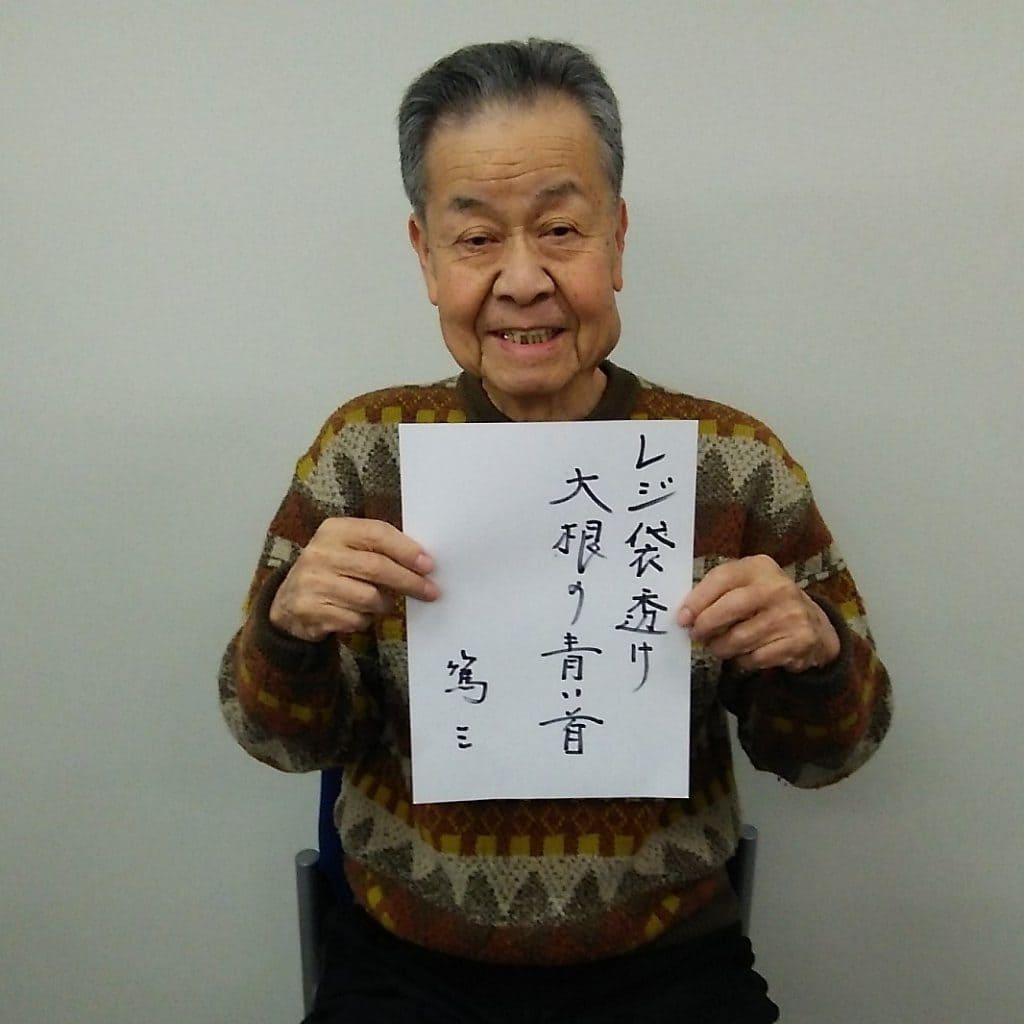 レジ袋透け
大根の青い首
篤三